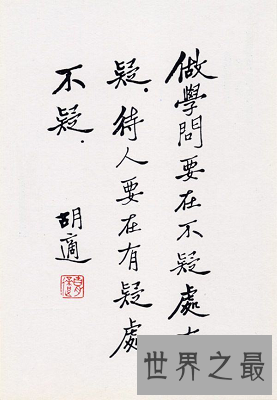 做學問要在不疑處有
疑.待人要在有疑處
不疑.
胡適
世界之最